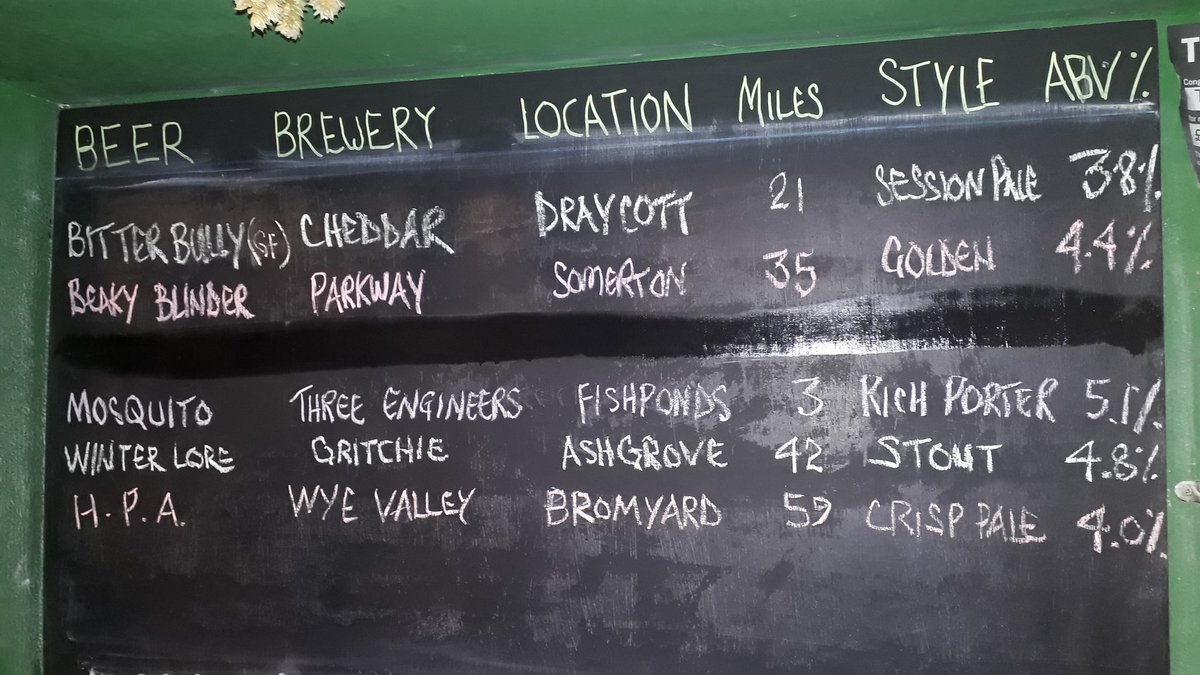 BEER BREWERY LOCATION MILES STYLE ABV%
BITTER BULLY (GF) CHEDDAR DRAYCOTT 21 SESSION PALE 3.8%
BEAKY BLINDER PARKWAY SOMERTON 35 GOLDEN 4.4%
MOSQUITO THREE ENGINEERS FISHPONDS 3 RICH PORTER 5.1%
WINTER LORE GRITCHIE ASHGROVE 42 STOUT 4.8%
H.P.A. WYE VALLEY BROMYARD 59 CRISP PALE 4.0%